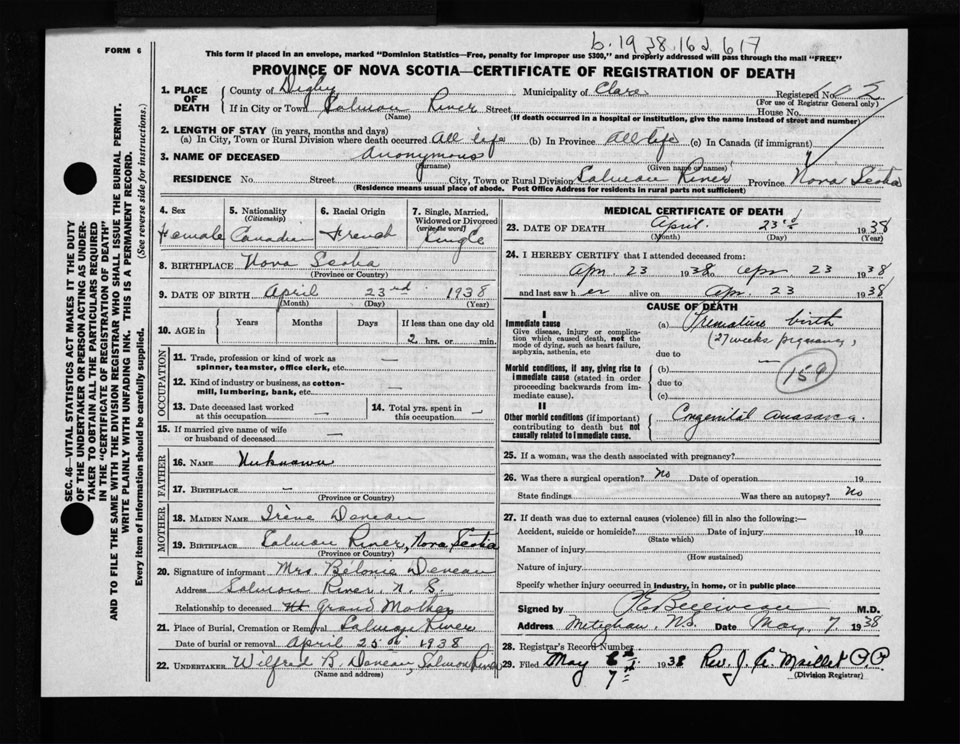 b. 1938. 162. 617
FORM 6
This form if placed in an envelope, marked "Dominion Statistics—Free, penalty for improper use $300," and properly addressed will pass through the mail "FREE"
PROVINCE OF NOVA SCOTIA—CERTIFICATE OF REGISTRATION OF DEATH
1. PLACE OF DEATH
County of Digby Municipality of Clare Registered No.
(For use of Registrar General only)
If in City or Town Salmon River Street House No.
(Name) (If death occurred in a hospital or institution, give the name instead of street and number)
2. LENGTH OF STAY (in years, months and days)
(a) In City, Town or Rural Division where death occurred All life (b) In Province All life (c) In Canada (if immigrant)
3. NAME OF DECEASED Anonymous
(Surname) (Given name or names)
RESIDENCE No. Street City, Town or Rural Division Salmon River Province Nova Scotia
(Residence means usual place of abode. Post Office Address for residents in rural parts not sufficient)
4. Sex
Female
5. Nationality
(Citizenship)
Canadian
6. Racial Origin
French
7. Single, Married, Widowed or Divorced
(write the word)
Single
8. BIRTHPLACE Nova Scotia
(Province or Country)
9. DATE OF BIRTH April 23rd 1938
(Month) (Day) (Year)
10. AGE in
Years Months Days If less than one day old
2 hrs. or min.
OCCUPATION
11. Trade, profession or kind of work as
spinner, teamster, office clerk, etc. —
12. Kind of industry or business, as cotton-
mill, lumbering, bank, etc. —
13. Date deceased last worked
at this occupation —
14. Total yrs. spent in
this occupation —
15. If married give name of wife
or husband of deceased —
FATHER
16. NAME Unknown
17. BIRTHPLACE —
(Province or Country)
MOTHER
18. MAIDEN NAME Irène Deveau
19. BIRTHPLACE Salmon River, Nova Scotia
(Province or Country)
20. Signature of informant Mrs. Bélonie Deveau
Address Salmon River, N. S.
Relationship to deceased Grand Mother
21. Place of Burial, Cremation or Removal Salmon River
Date of burial or removal April 25th 1938
22. UNDERTAKER Wilfred B. Deveau, Salmon River
(Name and address)
MEDICAL CERTIFICATE OF DEATH
23. DATE OF DEATH April 23rd 1938
(Month) (Day) (Year)
24. I HEREBY CERTIFY that I attended deceased from:
Apr. 23 1938 to Apr 23 1938
and last saw her alive on Apr. 23 1938
CAUSE OF DEATH
I
Immediate cause
Give disease, injury or complica-
tion which caused death, not the
mode of dying, such as heart failure,
asphyxia, asthenia, etc
(a) Premature birth
(27 weeks pregnancy)
due to
Morbid conditions, if any, giving rise to
immediate cause (stated in order
proceeding backwards from im-
mediate cause).
(b) —
due to
(c)
159
II
Other morbid conditions (if important)
contributing to death but not
causally related to immediate cause.
Congenital anasarca.
25. If a woman, was the death associated with pregnancy?
26. Was there a surgical operation? No Date of operation 19
State findings Was there an autopsy? No
27. If death was due to external causes (violence) fill in also the following:—
Accident, suicide or homicide? Date of injury 19
(State which)
Manner of injury
(How sustained)
Nature of injury
Specify whether injury occurred in industry, in home, or in public place
Signed by M.D.
Address Meteghan, N.S. Date May 7 1938
28. Registrar's Record Number
29. Filed May 7th 1938 Rev. J. A. Maillet P.P.
(Division Registrar)
SEC. 46—VITAL STATISTICS ACT MAKES IT THE DUTY
OF THE UNDERTAKER OR PERSON ACTING AS UNDER-
TAKER TO OBTAIN ALL THE PARTICULARS REQUIRED
IN THE "CERTIFICATE OF REGISTRATION OF DEATH"
AND TO FILE THE SAME WITH THE DIVISION REGISTRAR WHO SHALL ISSUE THE BURIAL PERMIT.
WRITE PLAINLY WITH UNFADING INK. THIS IS A PERMANENT RECORD.
Every item of information should be carefully supplied. (See reverse side for instructions.)